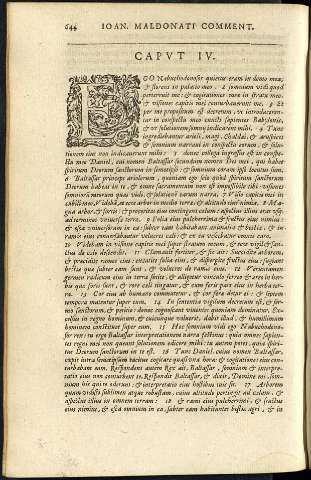 644 IOAN. MALDONATI COMMENT.
CAPVT IV.
EGO Nabuchodonosor quietus eram in domo mea,
& florens in palatio meo. 2 somnium vidi quod
perterruit me: & cogitationes meæ in stratu meo,
& visiones capitis mei conturbauerunt me. 3 Et
per me propositum est decretum, vt introducerentur
in conspectu meo cuncti sapientes Babylonis,
& vt solutionem somnij indicarent mihi. 4 Tunc
ingrediebantur arioli, magi, Chaldæi, & aruspices
& somnium narraui in conspectu eorum: & solutionem
eius non indicauerunt mihi: 5 donec collega ingressus est in conspectu
meo Daniel, cui nomen Baltassar secundum nomen Dei mei, qui habet
spiritum Deorum sanctorum in semetipso: & somnium coram ipso locutus sum.
6 Baltassar princeps ariolorum, quoniam ego scio quòd spiritum sanctorum
Deorum habeas in te, & omne sacramentum non est impossibile tibi: visiones
somniorum meorum quas vidi, & solutionem earum narra. 7 Visio capitis mei in
cubili meo. Videbam, & ecce arbor in medio terræ, & altitudo eius nimia. 8 Magna
arbor, & fortis: & proceritas eius contingens cælum: aspectus illius erat vsque
ad terminos vniuersæ terræ. 9 Folia eius pulcherrima & fructus eius nimius:
& esca vniuersorum in ea: subter eam habitabant animalia & bestiæ, & in
ramis eius conuersabantur volucres cæli: & ex ea vescebatur omnis caro.
10 Videbam in visione capitis mei super stratum meum, & ecce vigil & sanctus
de cælo descendit. 11 Clamauit fortiter, & sic ait: Succidite arborem,
& præcidite ramos eius: excutite folia eius, & dispergite fructus eius: fugiant
bestiæ quæ subter eam sunt, & volucres de ramis eius. 12 Veruntamen
germen radicum eius in terra sinite, & alligetur vinculo ferreo & æreo in herbis
quæ foris sunt, & rore cæli tingatur, & cum feris pars eius in herba terræ.
13 Cor eius ab humano commutetur, & cor feræ detur ei: & septem
tempora mutentur super eum. 14 In sententia vigilum decretum est, & sermo
sanctorum, & petitio: donec cognoscant viuentes quoniam dominatur Excelsus
in regno hominum, & cuicunque voluerit, dabit illud, & humillimum
hominem constituet super eum. 15 Hoc somnium vidi ego Nabuchodonosor
rex: tu ergo Baltassar interpretationem narra festinus: quia omnes sapientes
regni mei non queunt solutionem edicere mihi: tu autem potes, quia spiritus
Deorum sanctorum in te est. 16 Tunc Daniel, cuius nomen Baltassar,
cœpit intra semetipsum tacitus cogitare quasi vna hora: & cogitationes eius conturbabant
eum. Respondens autem Rex ait, Baltassar, somnium & interpretatio
eius non conturbent te. Respondit Baltassar, & dixit, Domine mi, somnium
his qui te oderunt: & interpretatio eius hostibus tuis sit. 17 Arborem
quam vidisti sublimem atque robustam, cuius altitudo pertingit ad cælum, &
aspectus illius in omnem terram: 18 & rami eius pulcherrimi, & fructus
eius nimius, & esca omnium in ea, subter eam habitantes bestiæ agri, & in